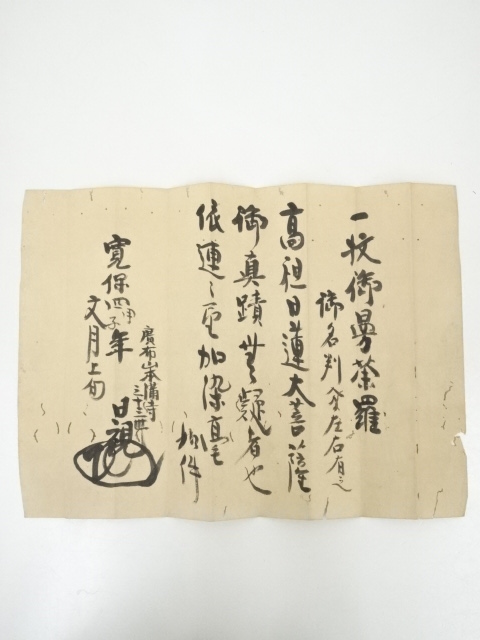 一枚御曼荼羅
御名判 左右有之
高祖日蓮大菩薩
御真蹟無疑者也
依連々 加染直毛
如件
寛保四甲子年
文月上旬
廣布山本満寺
三十三世
日親